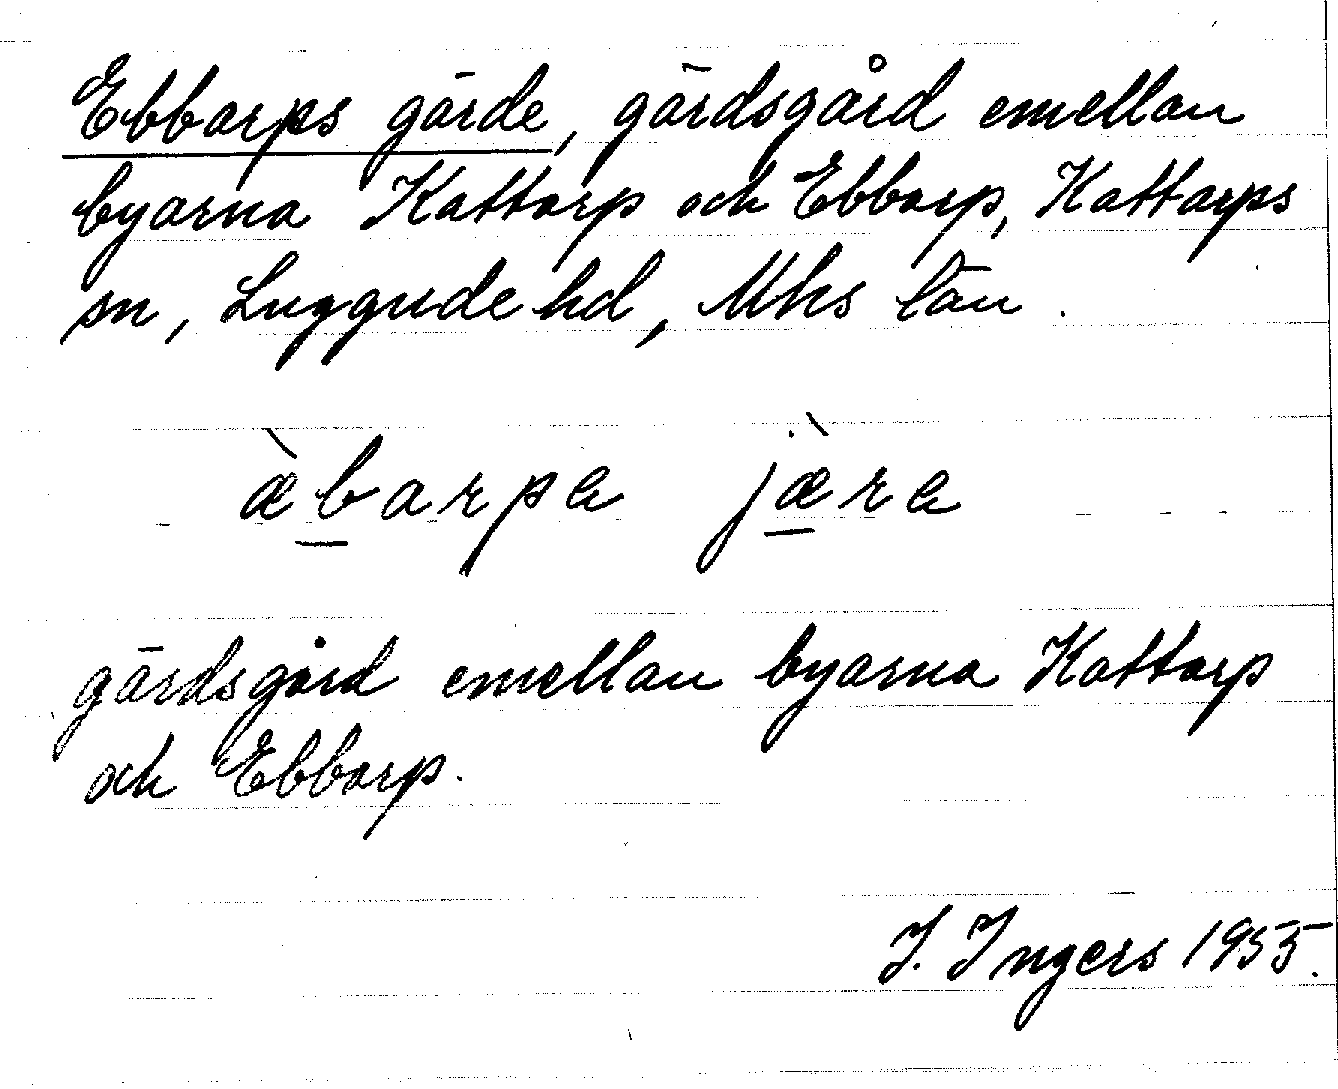 Ebbarps gärde, gärdsgård emellan
byarna Kattarp och Ebbarp, Kattarps
sn, Luggude hd, Mhs län.
æ̀b̲arpa jæ̲̀ra
gärdsgård emellan byarna Kattarp
och Ebbarp.
I. Ingers 1955.